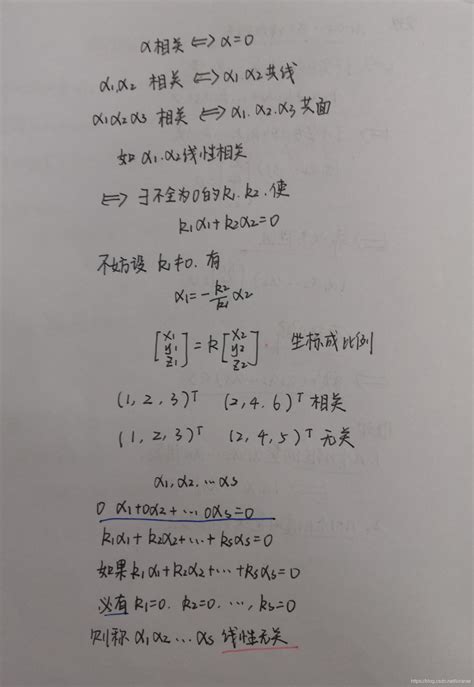 α相关 ⟺ α=0
α₁,α₂ 相关 ⟺ α₁ α₂共线
α₁α₂α₃ 相关 ⟺ α₁.α₂.α₃共面
如 α₁.α₂线性相关
⟺ ∃不全为0的k₁.k₂.使
k₁α₁+k₂α₂=0
不妨设 k₁≠0.有
α₁=-k₂/k₁ α₂
[x₁ y₁ z₁] = k [x₂ y₂ z₂]. 坐标成比例
(1,2,3)ᵀ (2,4.6)ᵀ 相关
(1,2,3)ᵀ (2,4,5)ᵀ 无关
α₁,α₂…αs
0 α₁+0α₂+…0αs=0
k₁α₁+k₂α₂+…+ksαs=0
如果k₁α₁+k₂α₂+…+ksαs=0
必有 k₁=0. k₂=0.…, ks=0
则称α₁α₂…αs 线性无关